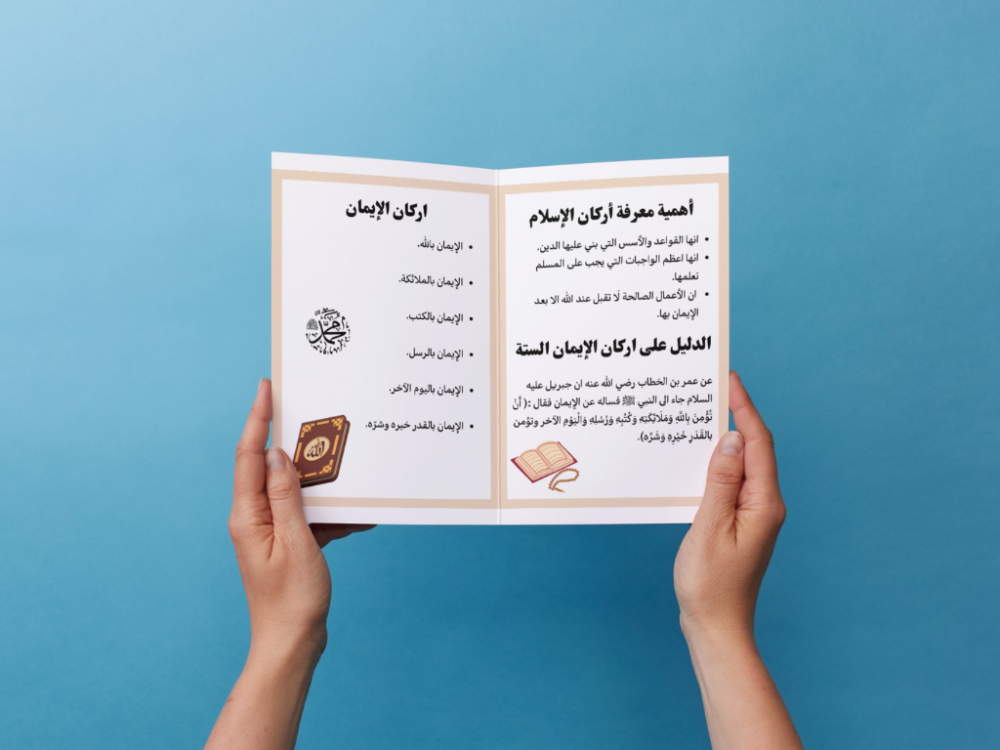 أهمية معرفة أركان الإسلام
• انها القواعد والأسس التي بني عليها الدين.
• انها اعظم الواجبات التي يجب على المسلم
تعلمها.
• ان الأعمال الصالحة لَا تقبل عند الله الا بعد
الإيمان بها.
الدليل على اركان الإيمان الستة
عن عمر بن الخطاب رضي الله عنه ان جبريل عليه
السلام جاء الى النبي ﷺ فساله عن الإيمان فقال :( أَنْ
تُؤْمِنَ بِاللَّهِ وَمَلَائِكَتِهِ وَكُتُبِهِ وَرُسُلِهِ وَالْيَوْمِ الآخر وتؤمن
بالقَدَرِ خَيْرِهِ وَشَرِّه).
اركان الإيمان
• الإيمان بالله.
• الإيمان بالملائكة.
• الإيمان بالكتب.
• الإيمان بالرسل.
• الإيمان باليوم الآخر.
• الإيمان بالقدر خيره وشرّه.
محمد
الله